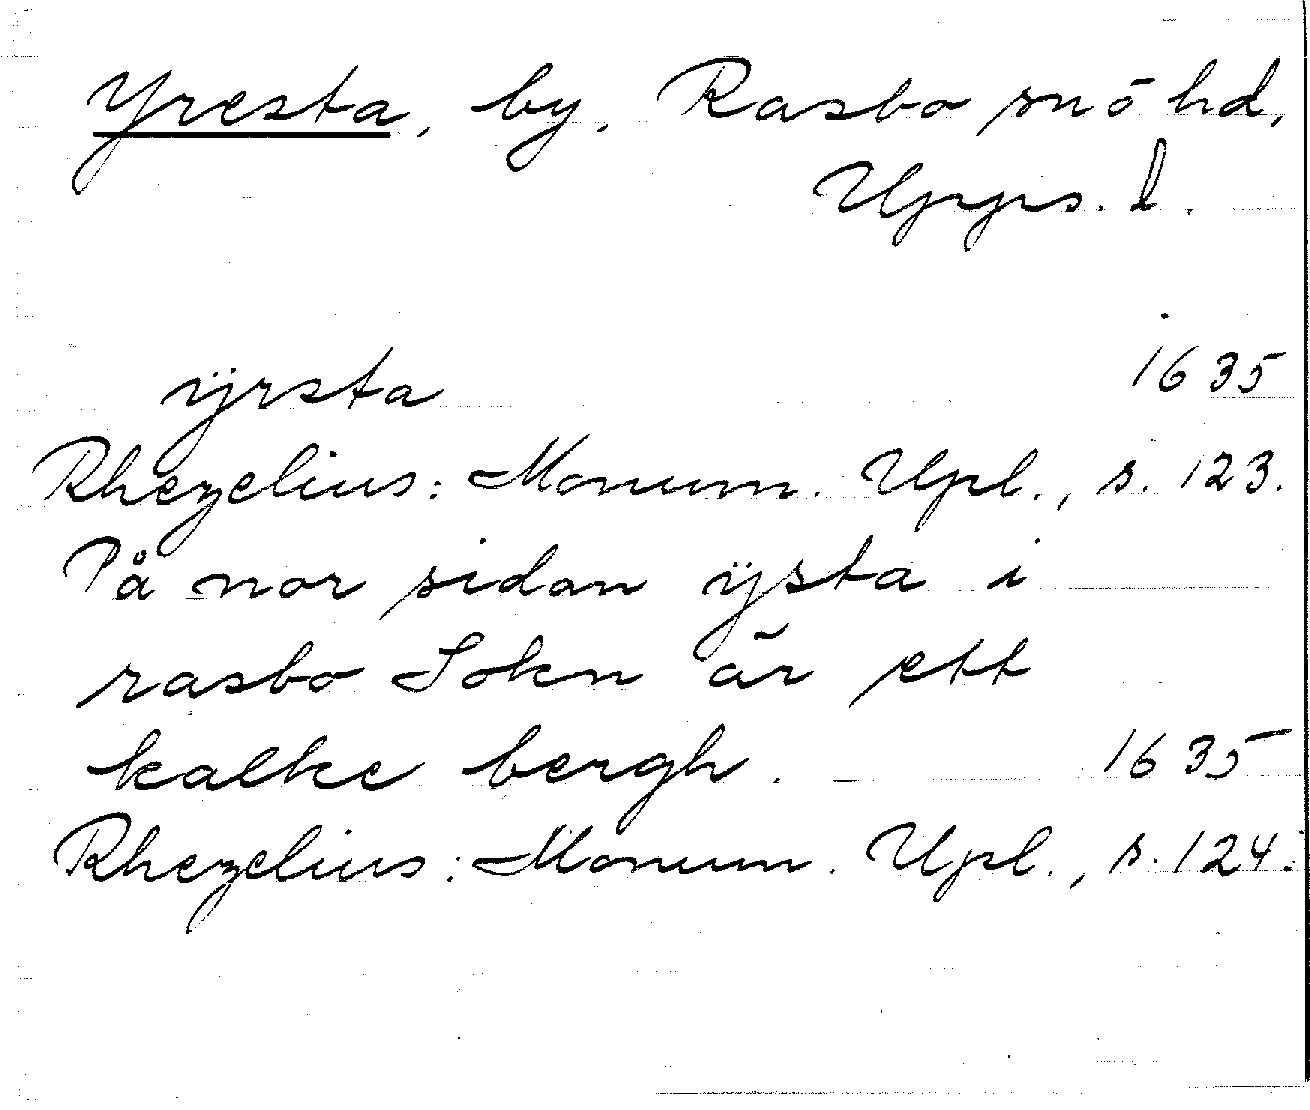 Yresta, by, Rasbo snö hd,
Upps. l.
ÿrsta 1635
Rhezelius: Monum. Upl., s. 123.
På nor sidan ÿsta i
rasbo Sokn är ett
kalke bergh. 1635
Rhezelius: Monum. Upl., s. 124.